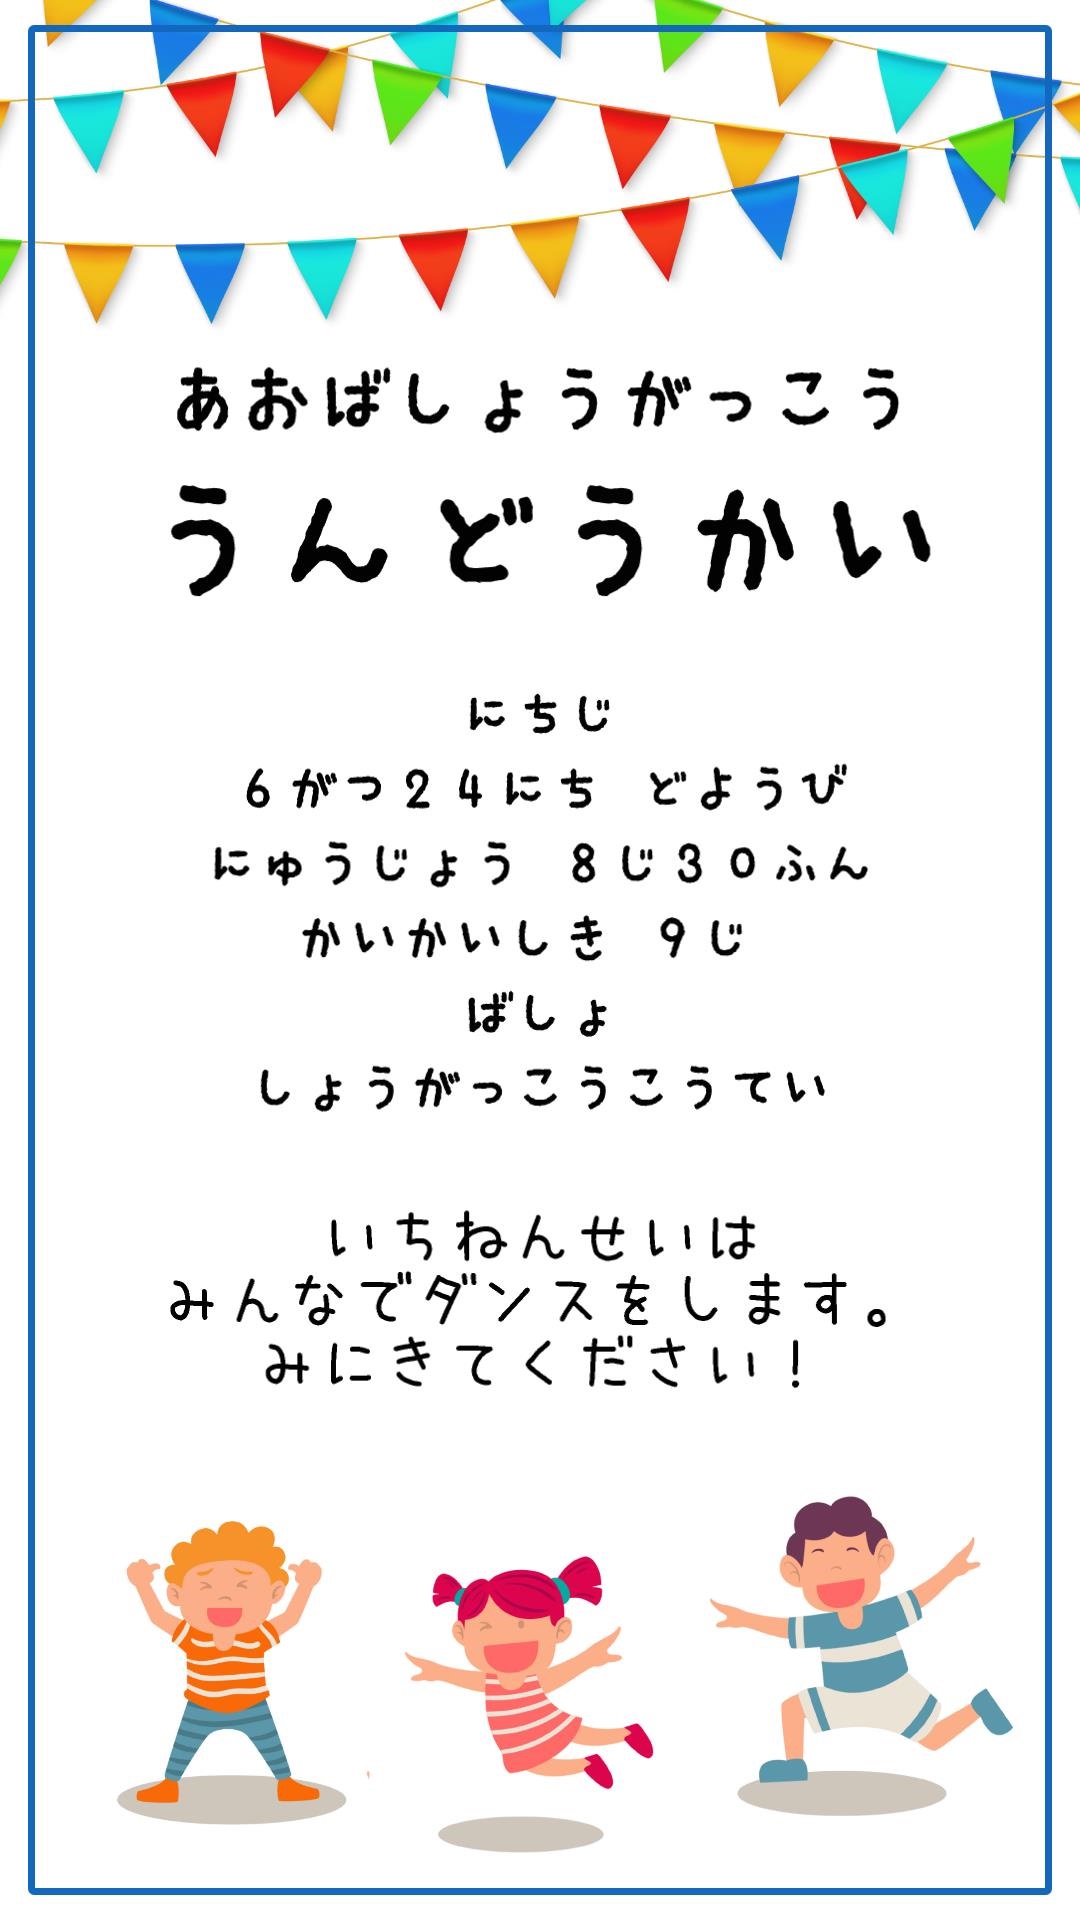 あおばしょうがっこう
うんどうかい
にちじ
6がつ24にち　どようび
にゅうじょう　8じ30ふん
かいかいしき　9じ
ばしょ
しょうがっこうこうてい
いちねんせいは
みんなでダンスをします。
みにきてください！